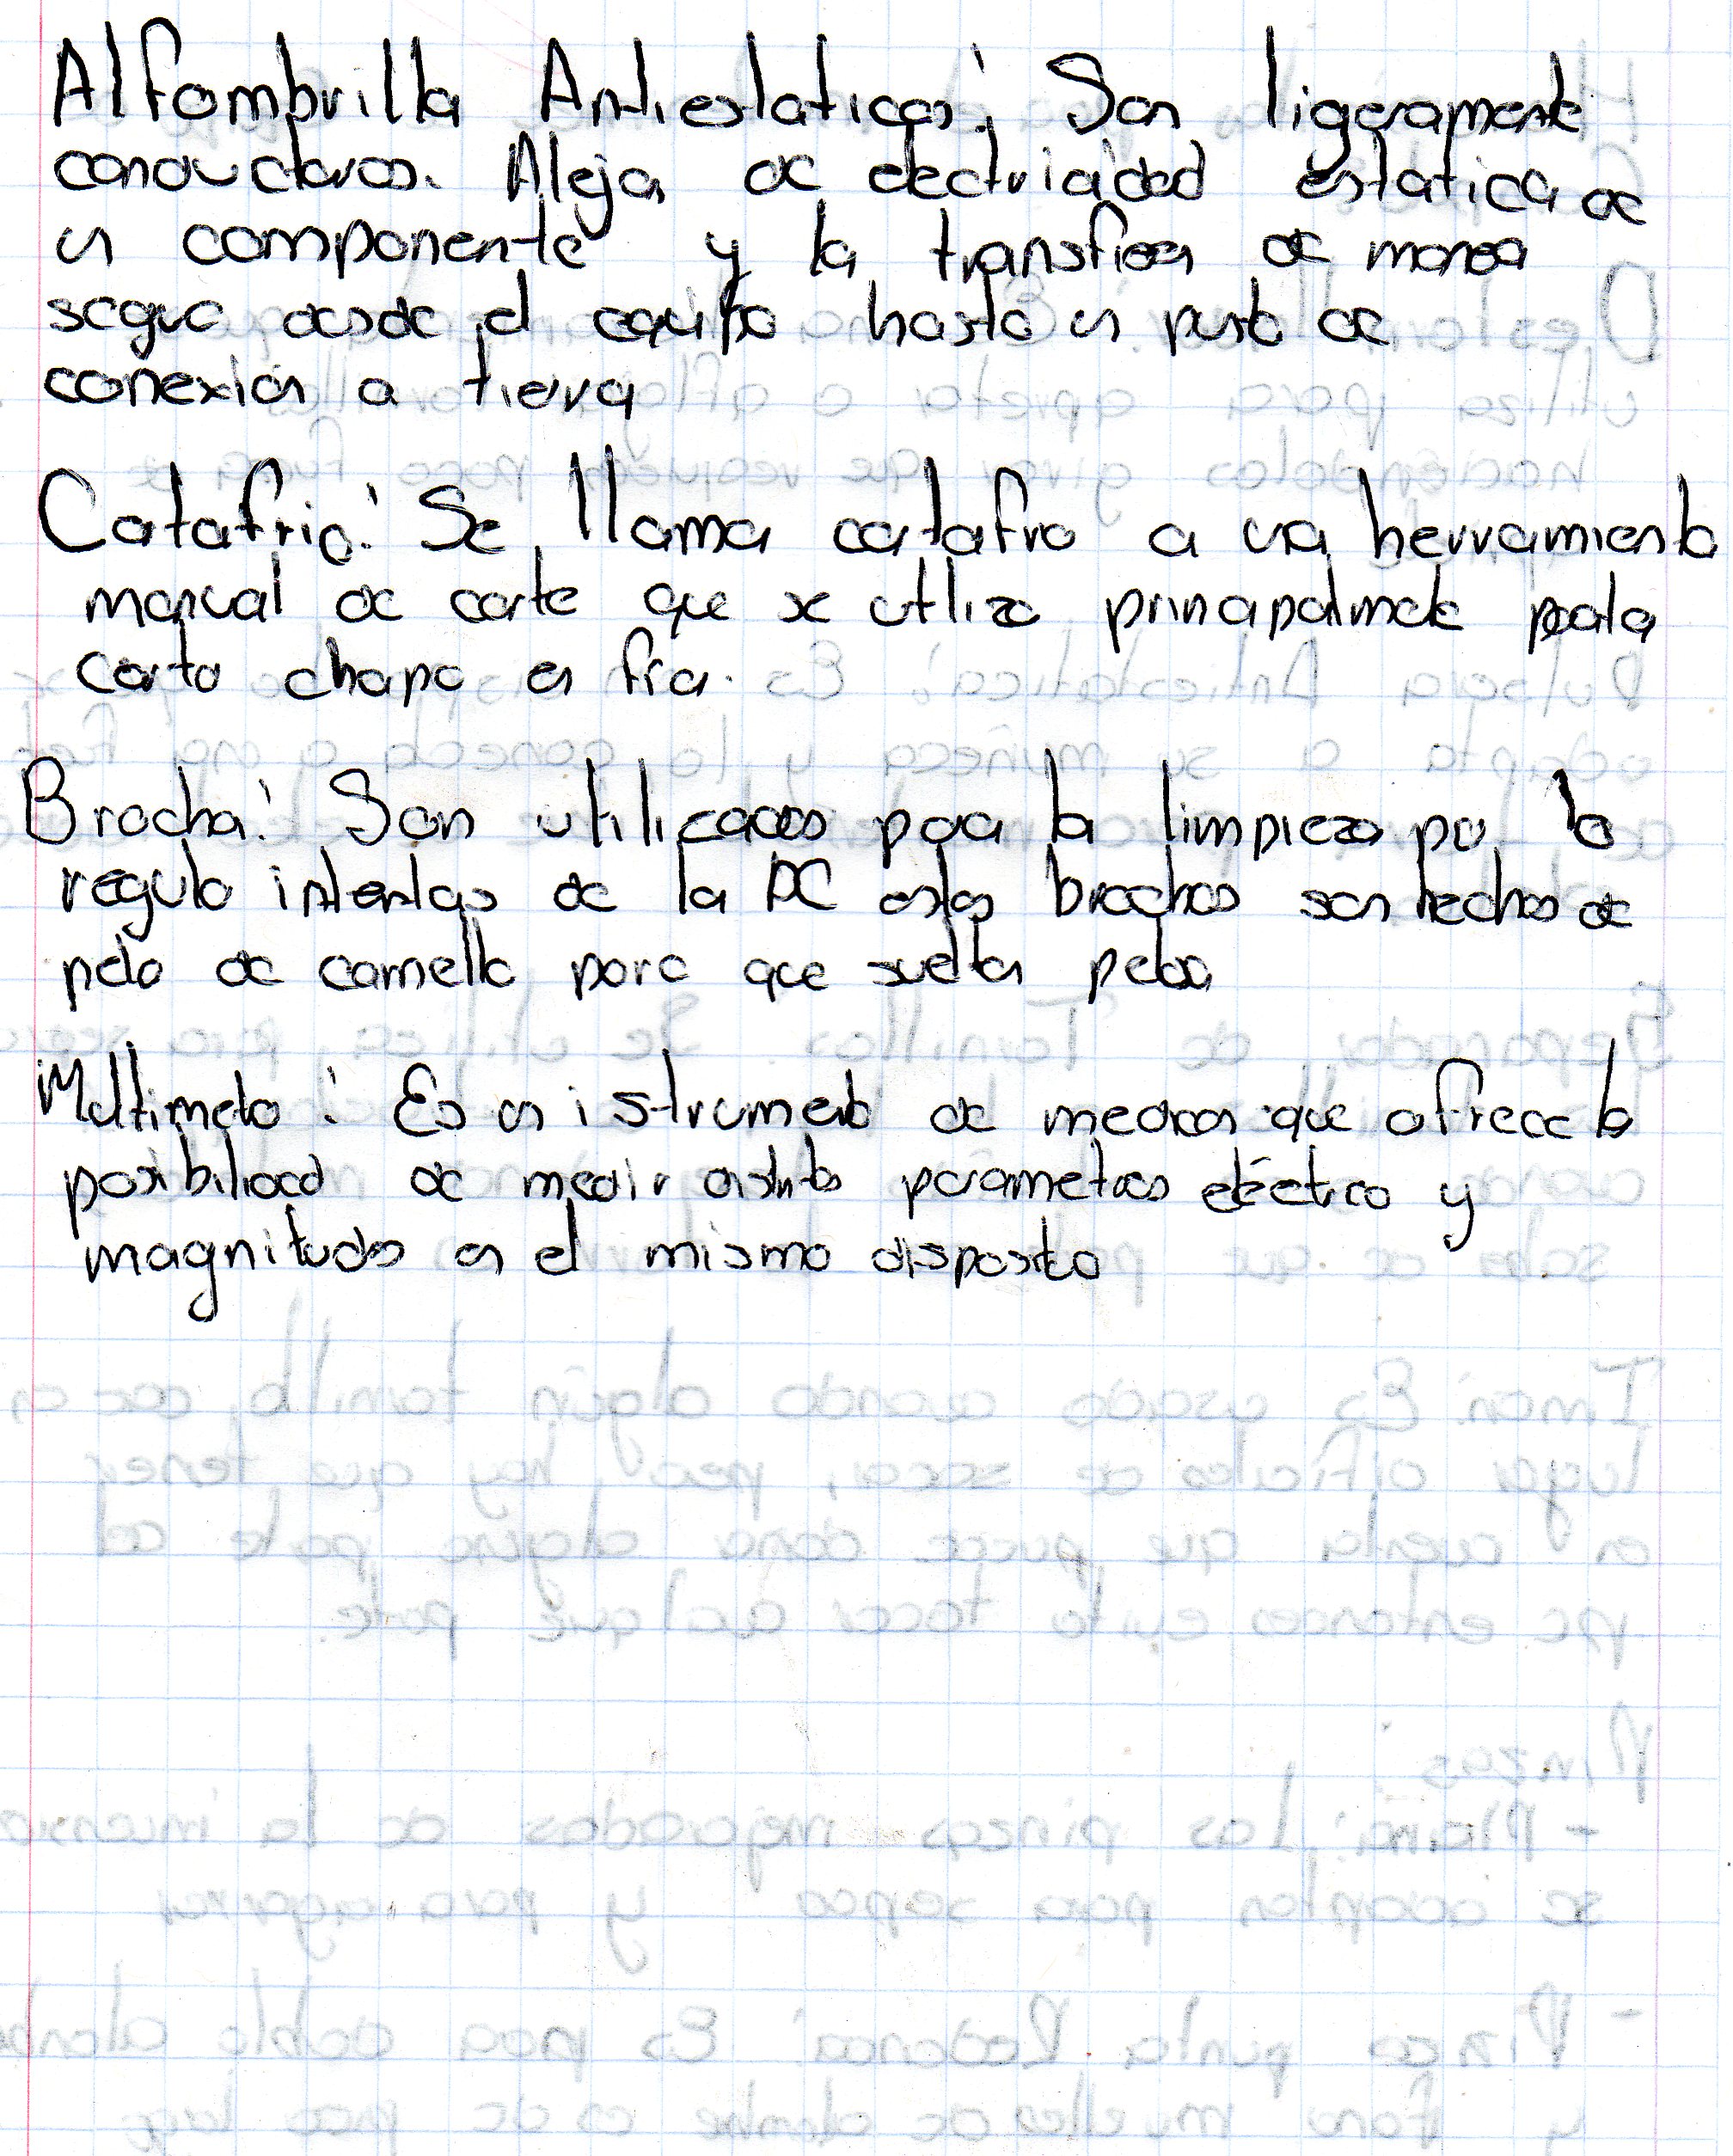 Alfombrilla Antiestaticas: Son ligeramente
conductoras. Aleja de electricidad estatica de
un componente y la transfiere de manera
segura desde el equipo hasta un punto de
conexión a tierra
Cortafrio: Se llama cortafrio a una herramienta
manual de corte que se utiliza principalmente para
corta chapa en fria.
Brocha: Son utilizadas para la limpieza por lo
regula de la PC estas brochas son hechas de
pelo de camello para que suelta pelos
Multimetro: Es un istrumento de medicion que ofrece la
posibilidad de medir distinto parametros eléctrico y
magnitudes en el mismo disposito